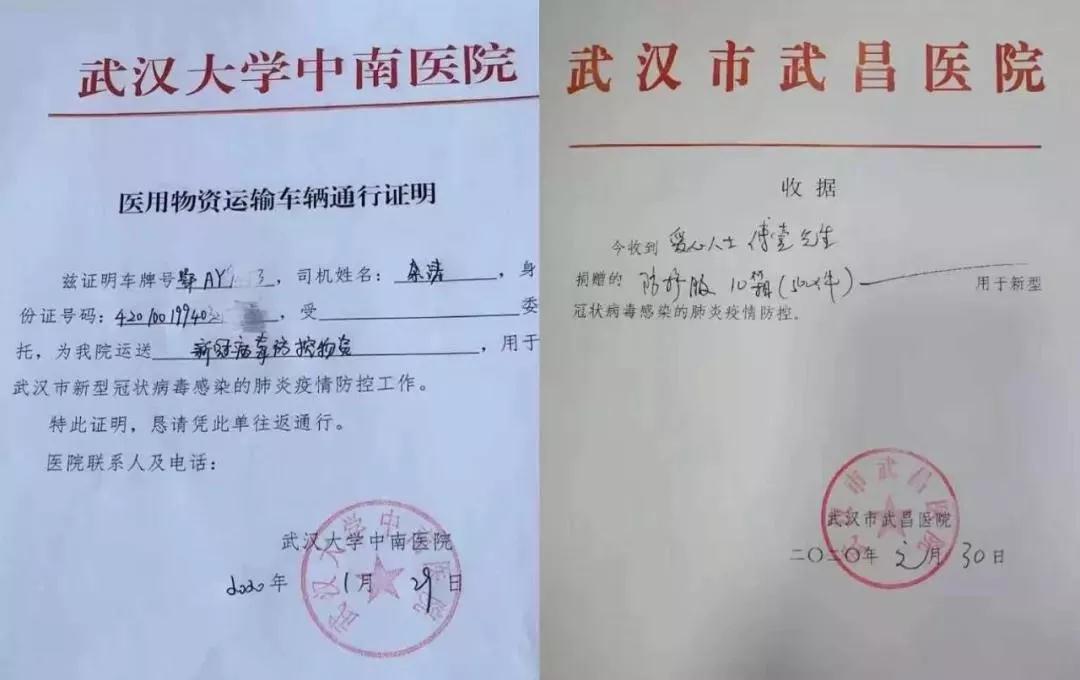 武汉大学中南医院
医用物资运输车辆通行证明
兹证明车牌号鄂AY 3，司机姓名：余涛，身
份证号码：42010019940，受 委
托，为我院运送新冠病毒防控物资，用于
武汉市新型冠状病毒感染的肺炎疫情防控工作。
特此证明，恳请凭此单往返通行。
医院联系人及电话：
武汉大学中南医院
2020年1月29日
武汉大学中南医院
武汉市武昌医院
收据
今收到 爱心人士 傅 先生
捐赠的 防护服 10箱（500件） 用于新型
冠状病毒感染的肺炎疫情防控。
武汉市武昌医院
二〇二〇年 元月30日
市武昌医院